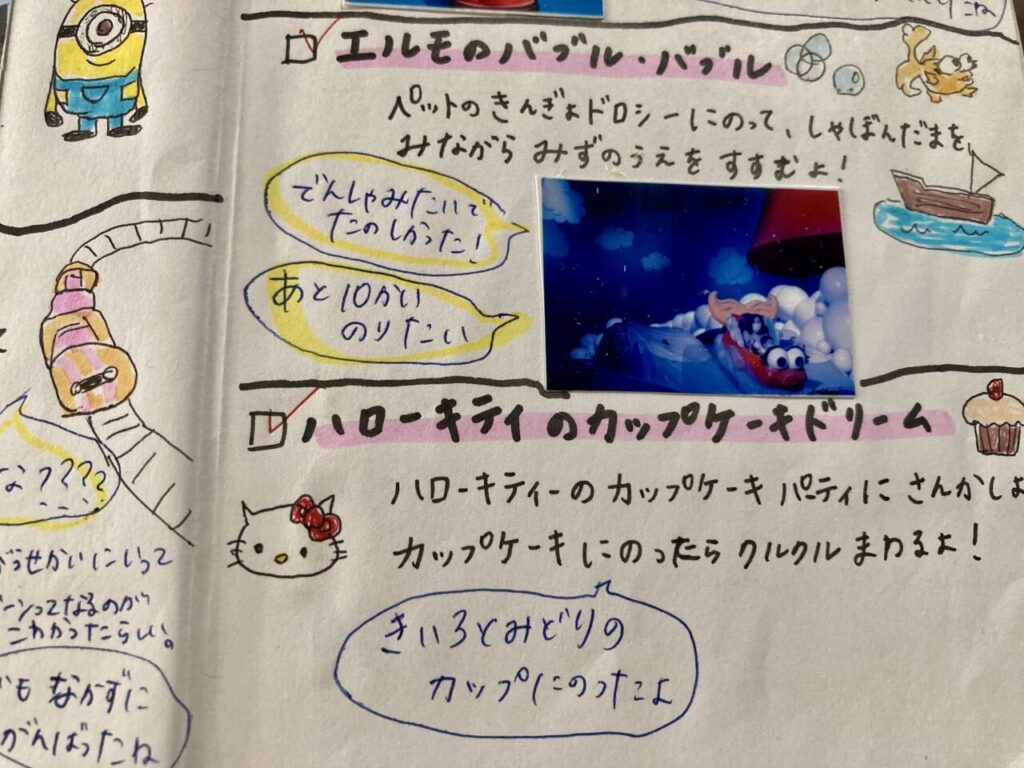 エルモのバブル・バブル
ペットのきんぎょドロシーにのって、しゃぼんだまを
みながら みずのうえを すすむよ!
でんしゃみたいで
たのしかった!
あと10かい
のりたい
ハローキティのカップケーキドリーム
ハローキティーのカップケーキ パーティに さんかしよ
カップケーキ にのったら クルクル まわるよ!
きいろとみどりの
カップにのったよ
な????
せかいにいって
ってなるのが
こわかったらしい。
も なかずに
がんばったね